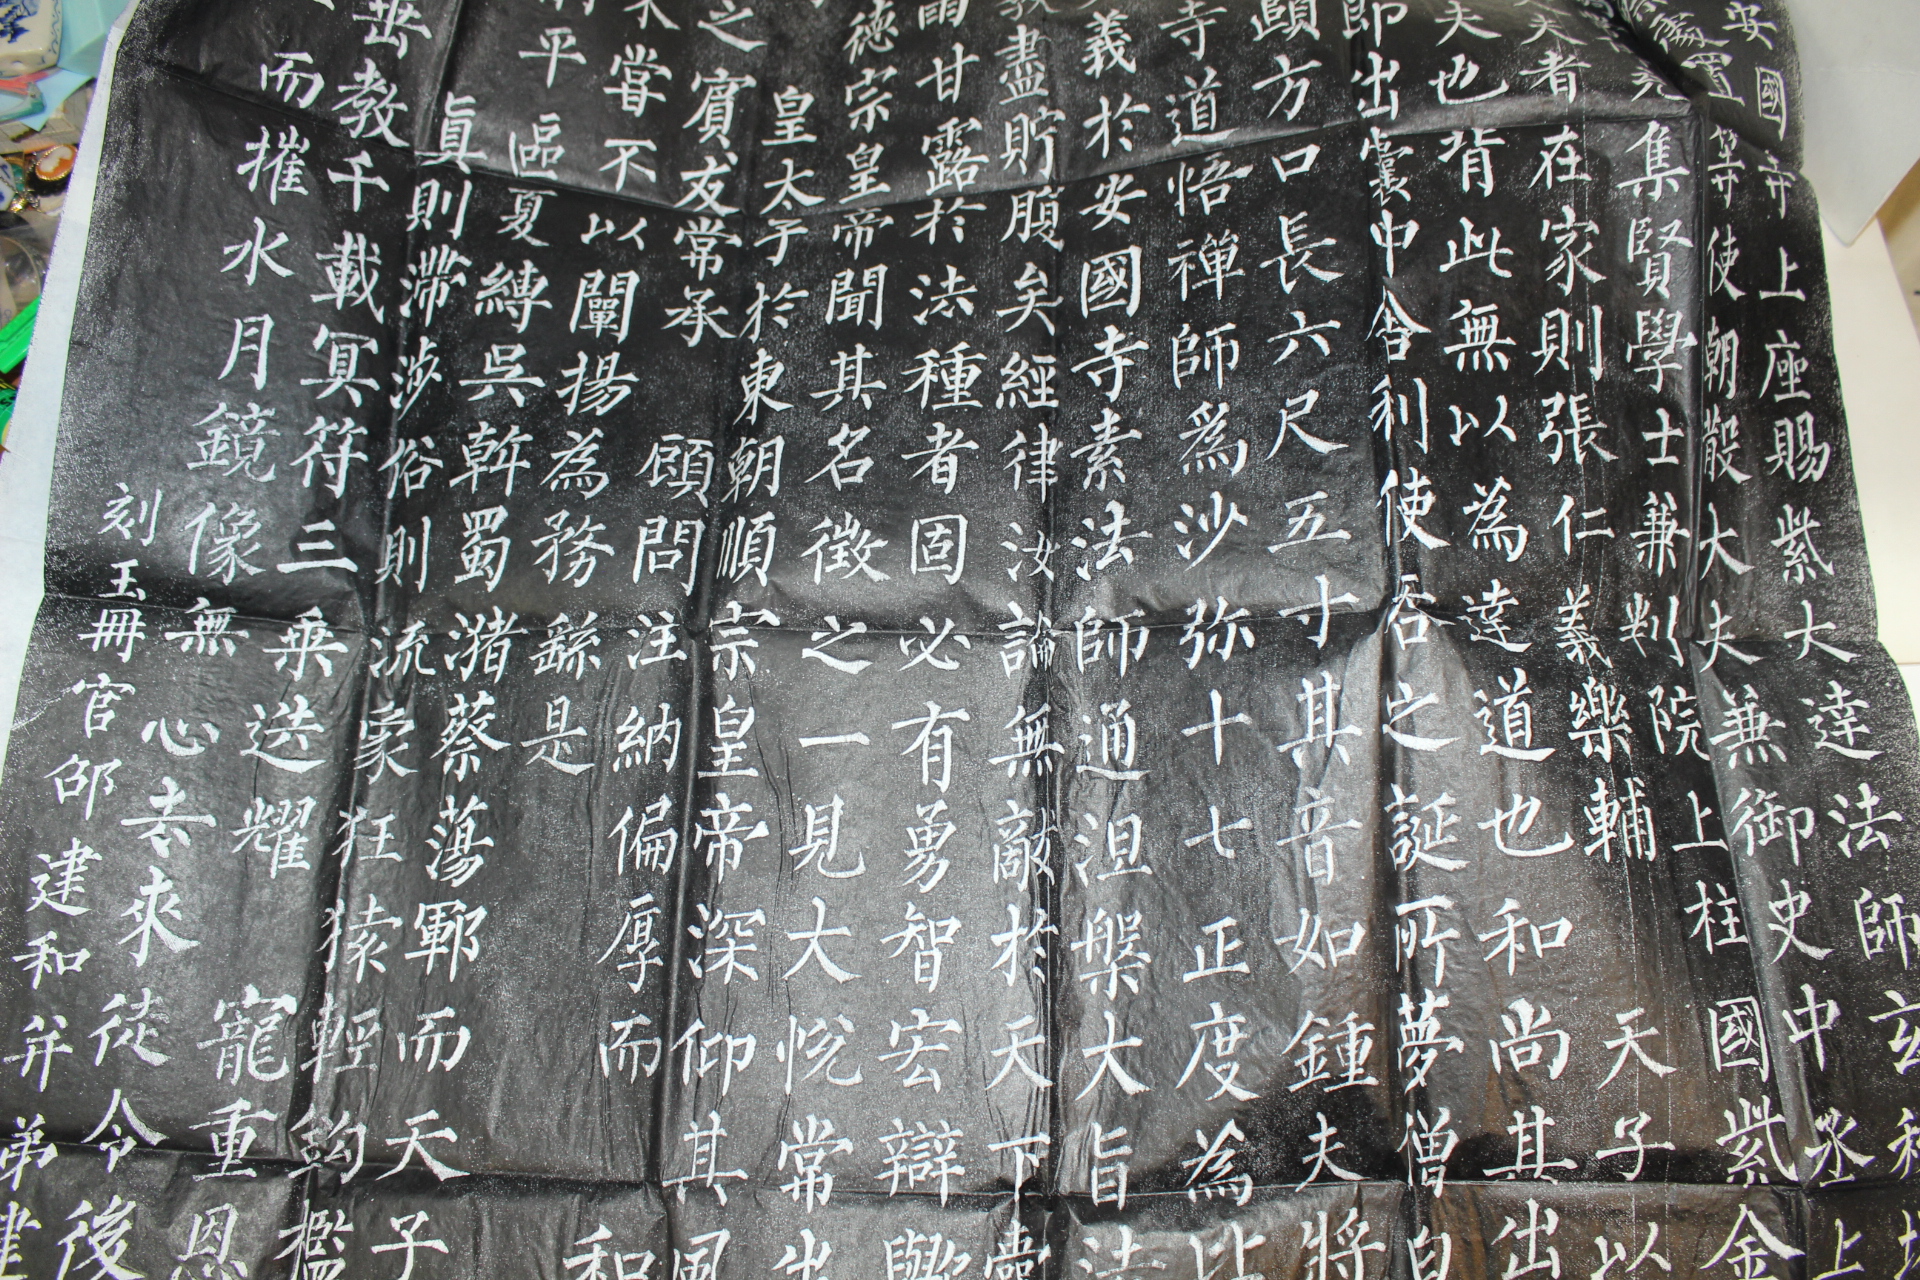 安國寺上座賜紫大達法師玄秘塔
處置等使朝散大夫兼御史中丞上
充集賢學士兼判院上柱國紫金
夫者在家則張仁義樂輔天子以
夫也背此無以為達道也和尚其出
即出囊中舍利使吞之誕所夢僧自
頤方口長六尺五寸其音如鍾夫將
寺道悟禪師為沙弥十七正度為比
義於安國寺素法師通涅槃大旨法
教盡貯腹矣經律汝論無敵於天下囊
雨甘露於法種者固必有勇智宏辯歟
德宗皇帝聞其名徵之一見大悅常出
皇太子於東朝順宗皇帝深仰其風
之賓友常承顧問注納偏厚而和
未嘗不以闡揚為務繇是
削平區夏縛吳斡蜀瀦蔡蕩鄆而天子
真則滯涉俗則流象狂猿輕鈎檻
垂教千載冥符三乘迭耀寵重恩
而摧水月鏡像無心去來徒令後
刻玉冊官邵建和并弟建